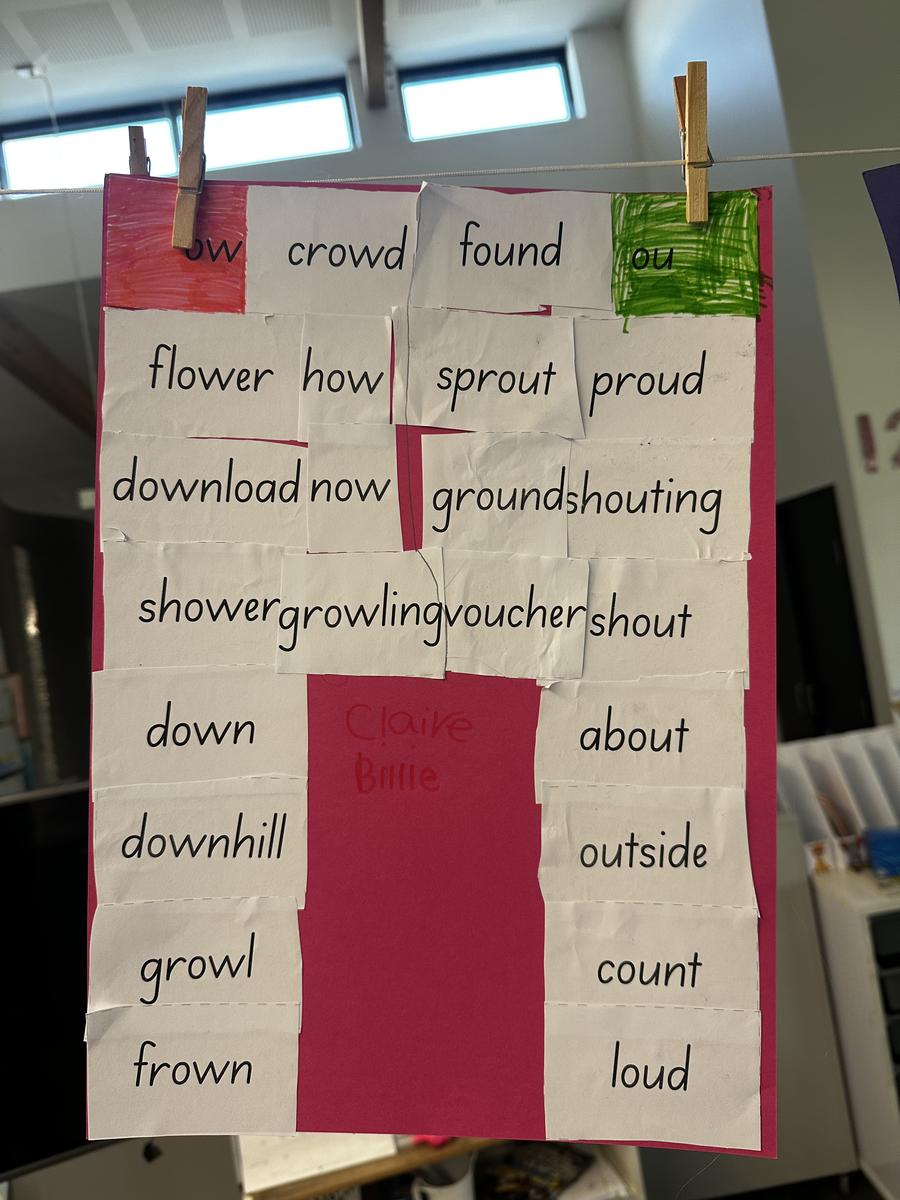 ow crowd found ou
flower how sprout proud
download now ground shouting
shower growling voucher shout
Claire
Billie
down about
downhill outside
growl count
frown loud